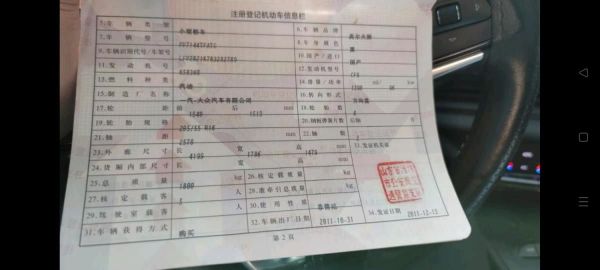 注册登记机动车信息栏
5.车辆类型 小型轿车 6.车辆品牌 高尔夫牌
7.车辆型号 FV7144TFATG 8.车身颜色 蓝
9.车辆识别代号/车架号 10.国产/进口 国产
11.发动机号 12.发动机型号 CFB
13.燃料种类 汽油 14.排量/功率 1390 ml/ kw
15.制造厂名称 一汽-大众汽车有限公司 16.转向形式 方向盘
17.轮距 前 1540 后 1513 mm 18.轮胎数 4
19.轮胎规格 205/55 R16 20.钢板弹簧片数 后轴
21.轴距 2578 mm 22.轴数 2
23.外廓尺寸 长 4199 宽 1786 高 1479 mm 33.发证机关章
24.货厢内部尺寸 长 宽 高 mm
25.总质量 1800 kg 26.核定载质量 kg
27.核定载客 5 人 28.准牵引总质量 kg
29.驾驶室载客 人 30.使用性质 非营运
31.车辆获得方式 购买 32.车辆出厂日期 2011-10-31 34.发证日期 2011-12-13
第2页